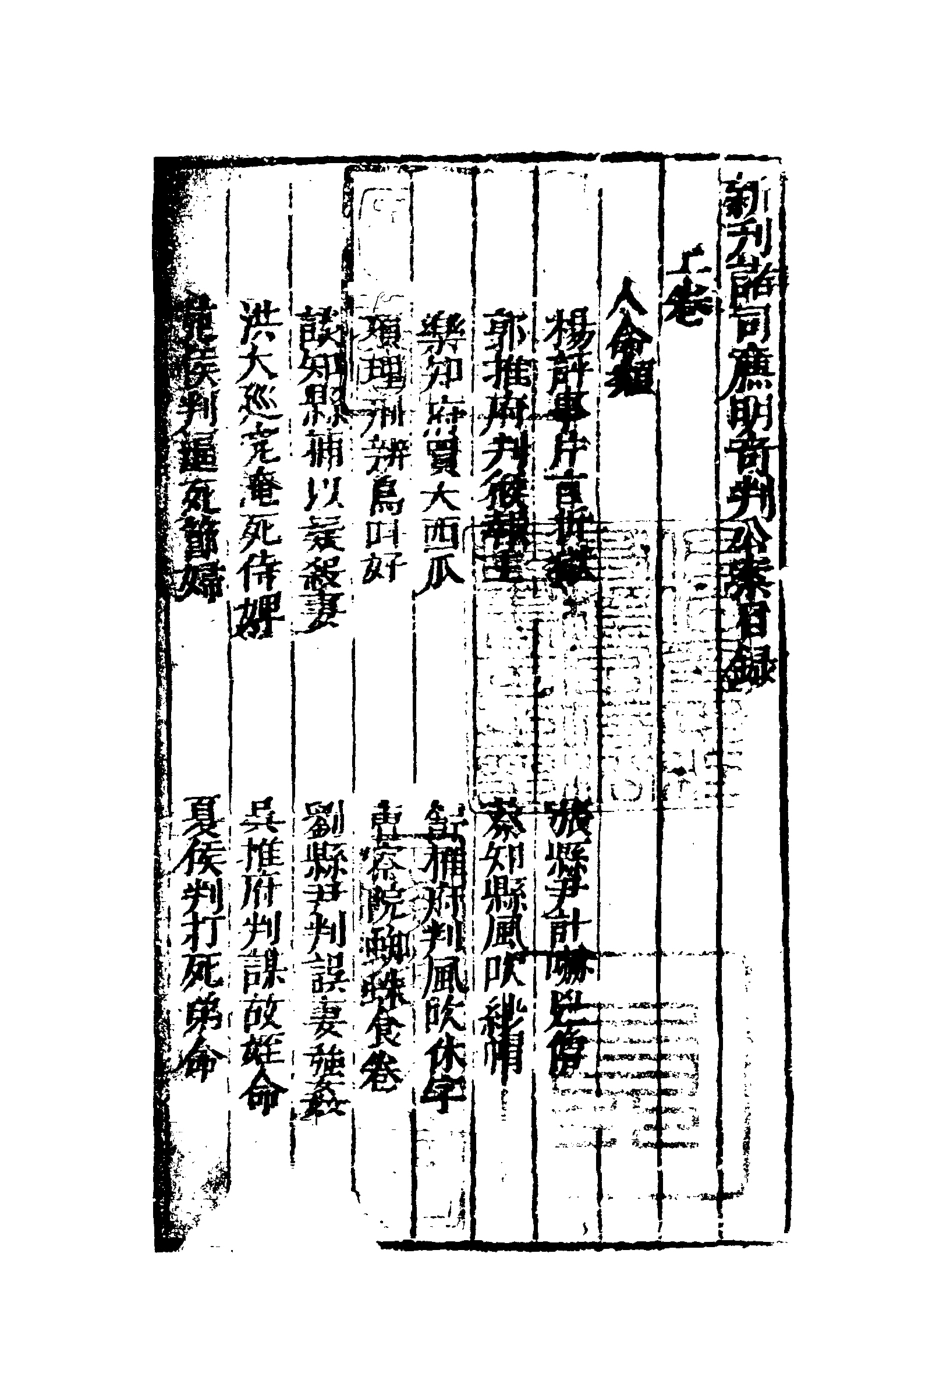 新刊諸司廉明奇判公案目録
上卷
人命類
楊評事片言折獄
張縣尹計嚇兇僧
郭推府判猴報主
蔡知縣風吹紗帽
樂知府買大西瓜
舒推府判風吹休字
項理刑辨鳥叫好
曹察院蜘蛛食卷
譚知縣捕以疑殺妻
劉縣尹判誤妻強姦
洪大巡究淹死侍婢
吳推府判謀故姪命
范侯判逼死節婦
夏侯判打死弟命